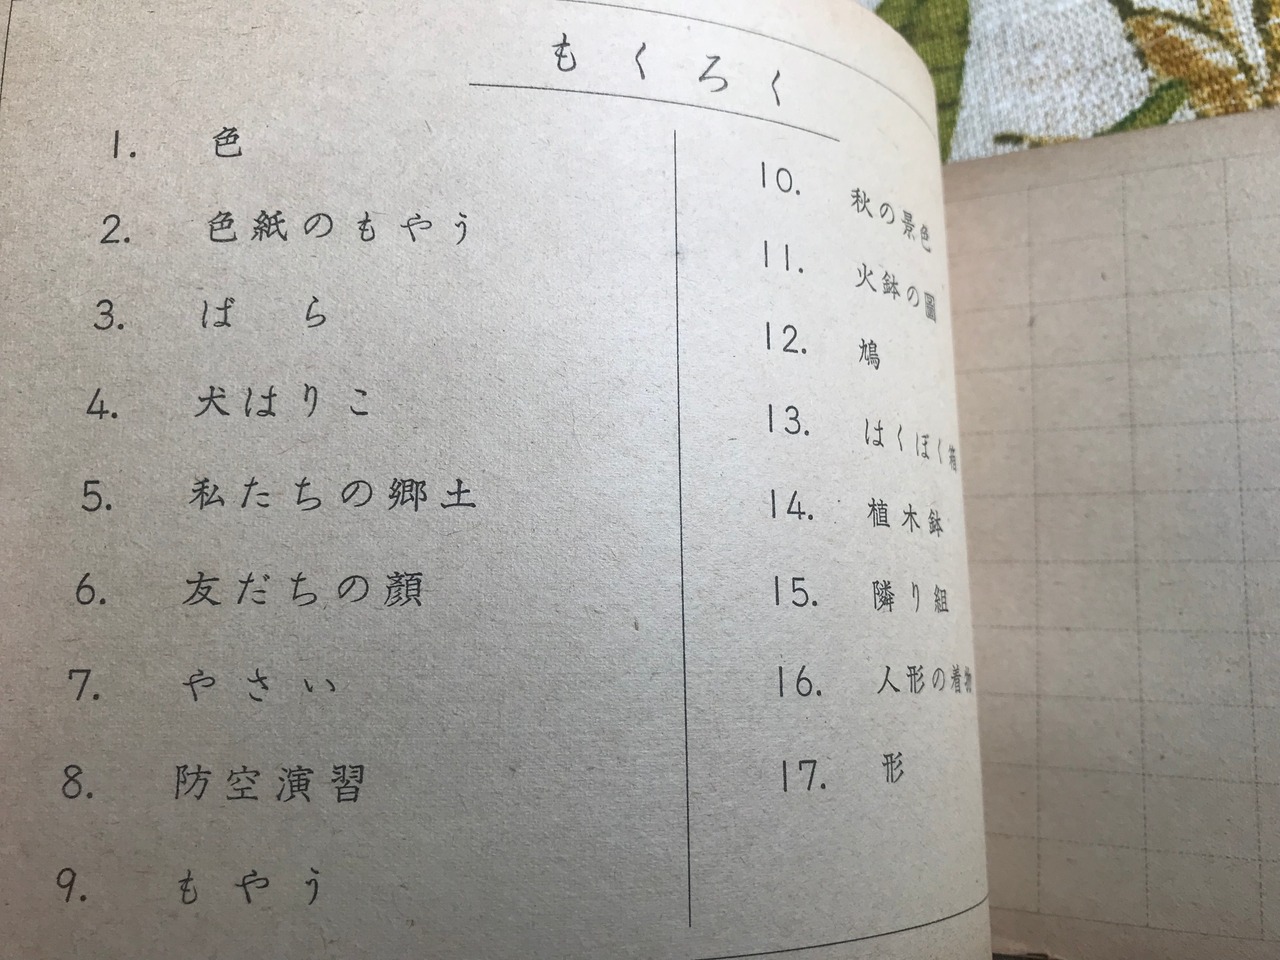 もくろく
1. 色
2. 色紙のもやう
3. ばら
4. 犬はりこ
5. 私たちの郷土
6. 友だちの顏
7. やさい
8. 防空演習
9. もやう
10. 秋の景色
11. 火鉢の圖
12. 鳩
13. はくぼく箱
14. 植木鉢
15. 隣り組
16. 人形の着物
17. 形